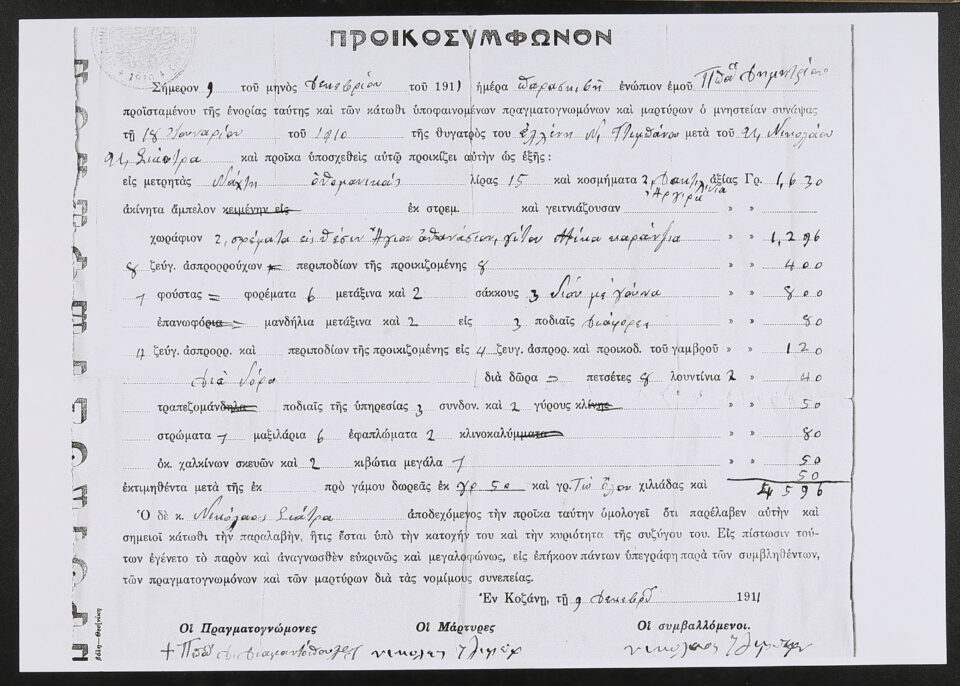 ΠΡΟΙΚΟΣΥΜΦΩΝΟΝ
Σήμερον 9 τοῦ μηνὸς Δεκεμβρίου τοῦ 1911 ἡμέρα Παρασκευὴ ἐνώπιον ἐμοῦ Δημητρίου
προϊσταμένου τῆς ἐνορίας ταύτης καὶ τῶν κάτωθι ὑποφαινομένων πραγματογνωμόνων καὶ μαρτύρων ὁ μνηστείαν συνάψας
τῇ 18 τοῦ 1910 τῆς θυγατρὸς του Ἑλλένη Ν, μετὰ τοῦ Νικολάου
Σιάτρα καὶ προῖκα ὑποσχεθεὶς αὐτῷ προικίζει αὐτὴν ὡς ἐξῆς :
εἰς μετρητὰς λίρας 15 καὶ κοσμήματα 2, ἀξίας Γρ. 1,630
ἀκίνητα ἄμπελον κειμένην εἰς ἐκ στρεμ. καὶ γειτνιάζουσαν » »
χωράφιον 2, στρέματα εἰς θέσιν Ἅγιον Ἀθανάσιον, » » 1,296
8 ζεύγ. ἀσπρορρούχων περιποδίων τῆς προικιζομένης 8 » » 400
7 φούστας = φορέματα 6 μετάξινα καὶ 2 σάκκους 3 με γούνα » » 800
ἐπανωφόρια = μανδήλια μετάξινα καὶ 2 εἰς 3 ποδιαῖς Διάφορες » » 80
4 ζεύγ. ἀσπρορρ. καὶ περιποδίων τῆς προικιζομένης εἰς 4 ζευγ. ἀσπρορ. καὶ προικοδ. τοῦ γαμβροῦ » » 120
διὰ δῶρα = πετσέτες 8 λουντίνια 2 » » 40
τραπεζομάνδηλα ποδιαῖς τῆς ὑπηρεσίας 3 συνδον. καὶ 2 γύρους κλίνης » » 50
στρώματα 7 μαξιλάρια 6 ἐφαπλώματα 2 κλινοκαλύμματα » » 80
ὀκ. χαλκίνων σκευῶν καὶ 2 κιβώτια μεγάλα 7 » » 50
50
ἐκτιμηθέντα μετὰ τῆς ἐκ πρὸ γάμου δωρεᾶς ἐκ γρ 50 καὶ γρ. Τὸ ὅλον χιλιάδας καὶ 4596
Ὁ δὲ κ. Νικόλαος Σιάτρα ἀποδεχόμενος τὴν προῖκα ταύτην ὁμολογεῖ ὅτι παρέλαβεν αὐτὴν καὶ
σημειοῖ κάτωθι τὴν παραλαβήν, ἥτις ἔσται ὑπὸ τὴν κατοχήν του καὶ τὴν κυριότητα τῆς συζύγου του. Εἰς πίστωσιν τού-
των ἐγένετο τὸ παρὸν καὶ ἀναγνωσθὲν εὐκρινῶς καὶ μεγαλοφώνως, εἰς ἐπήκοον πάντων ὑπεγράφη παρὰ τῶν συμβληθέντων,
τῶν πραγματογνωμόνων καὶ τῶν μαρτύρων διὰ τὰς νομίμους συνεπείας.
Ἐν Κοζάνῃ, τῇ 9 1911
Οἱ Πραγματογνώμονες Οἱ Μάρτυρες Οἱ συμβαλλόμενοι.